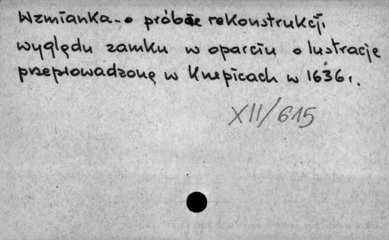 Wzmianka o próbie rekonstrukcji
wyglądu zamku w oparciu o lustrację
przeprowadzoną w Knepicach w 1636 r.
XII/615